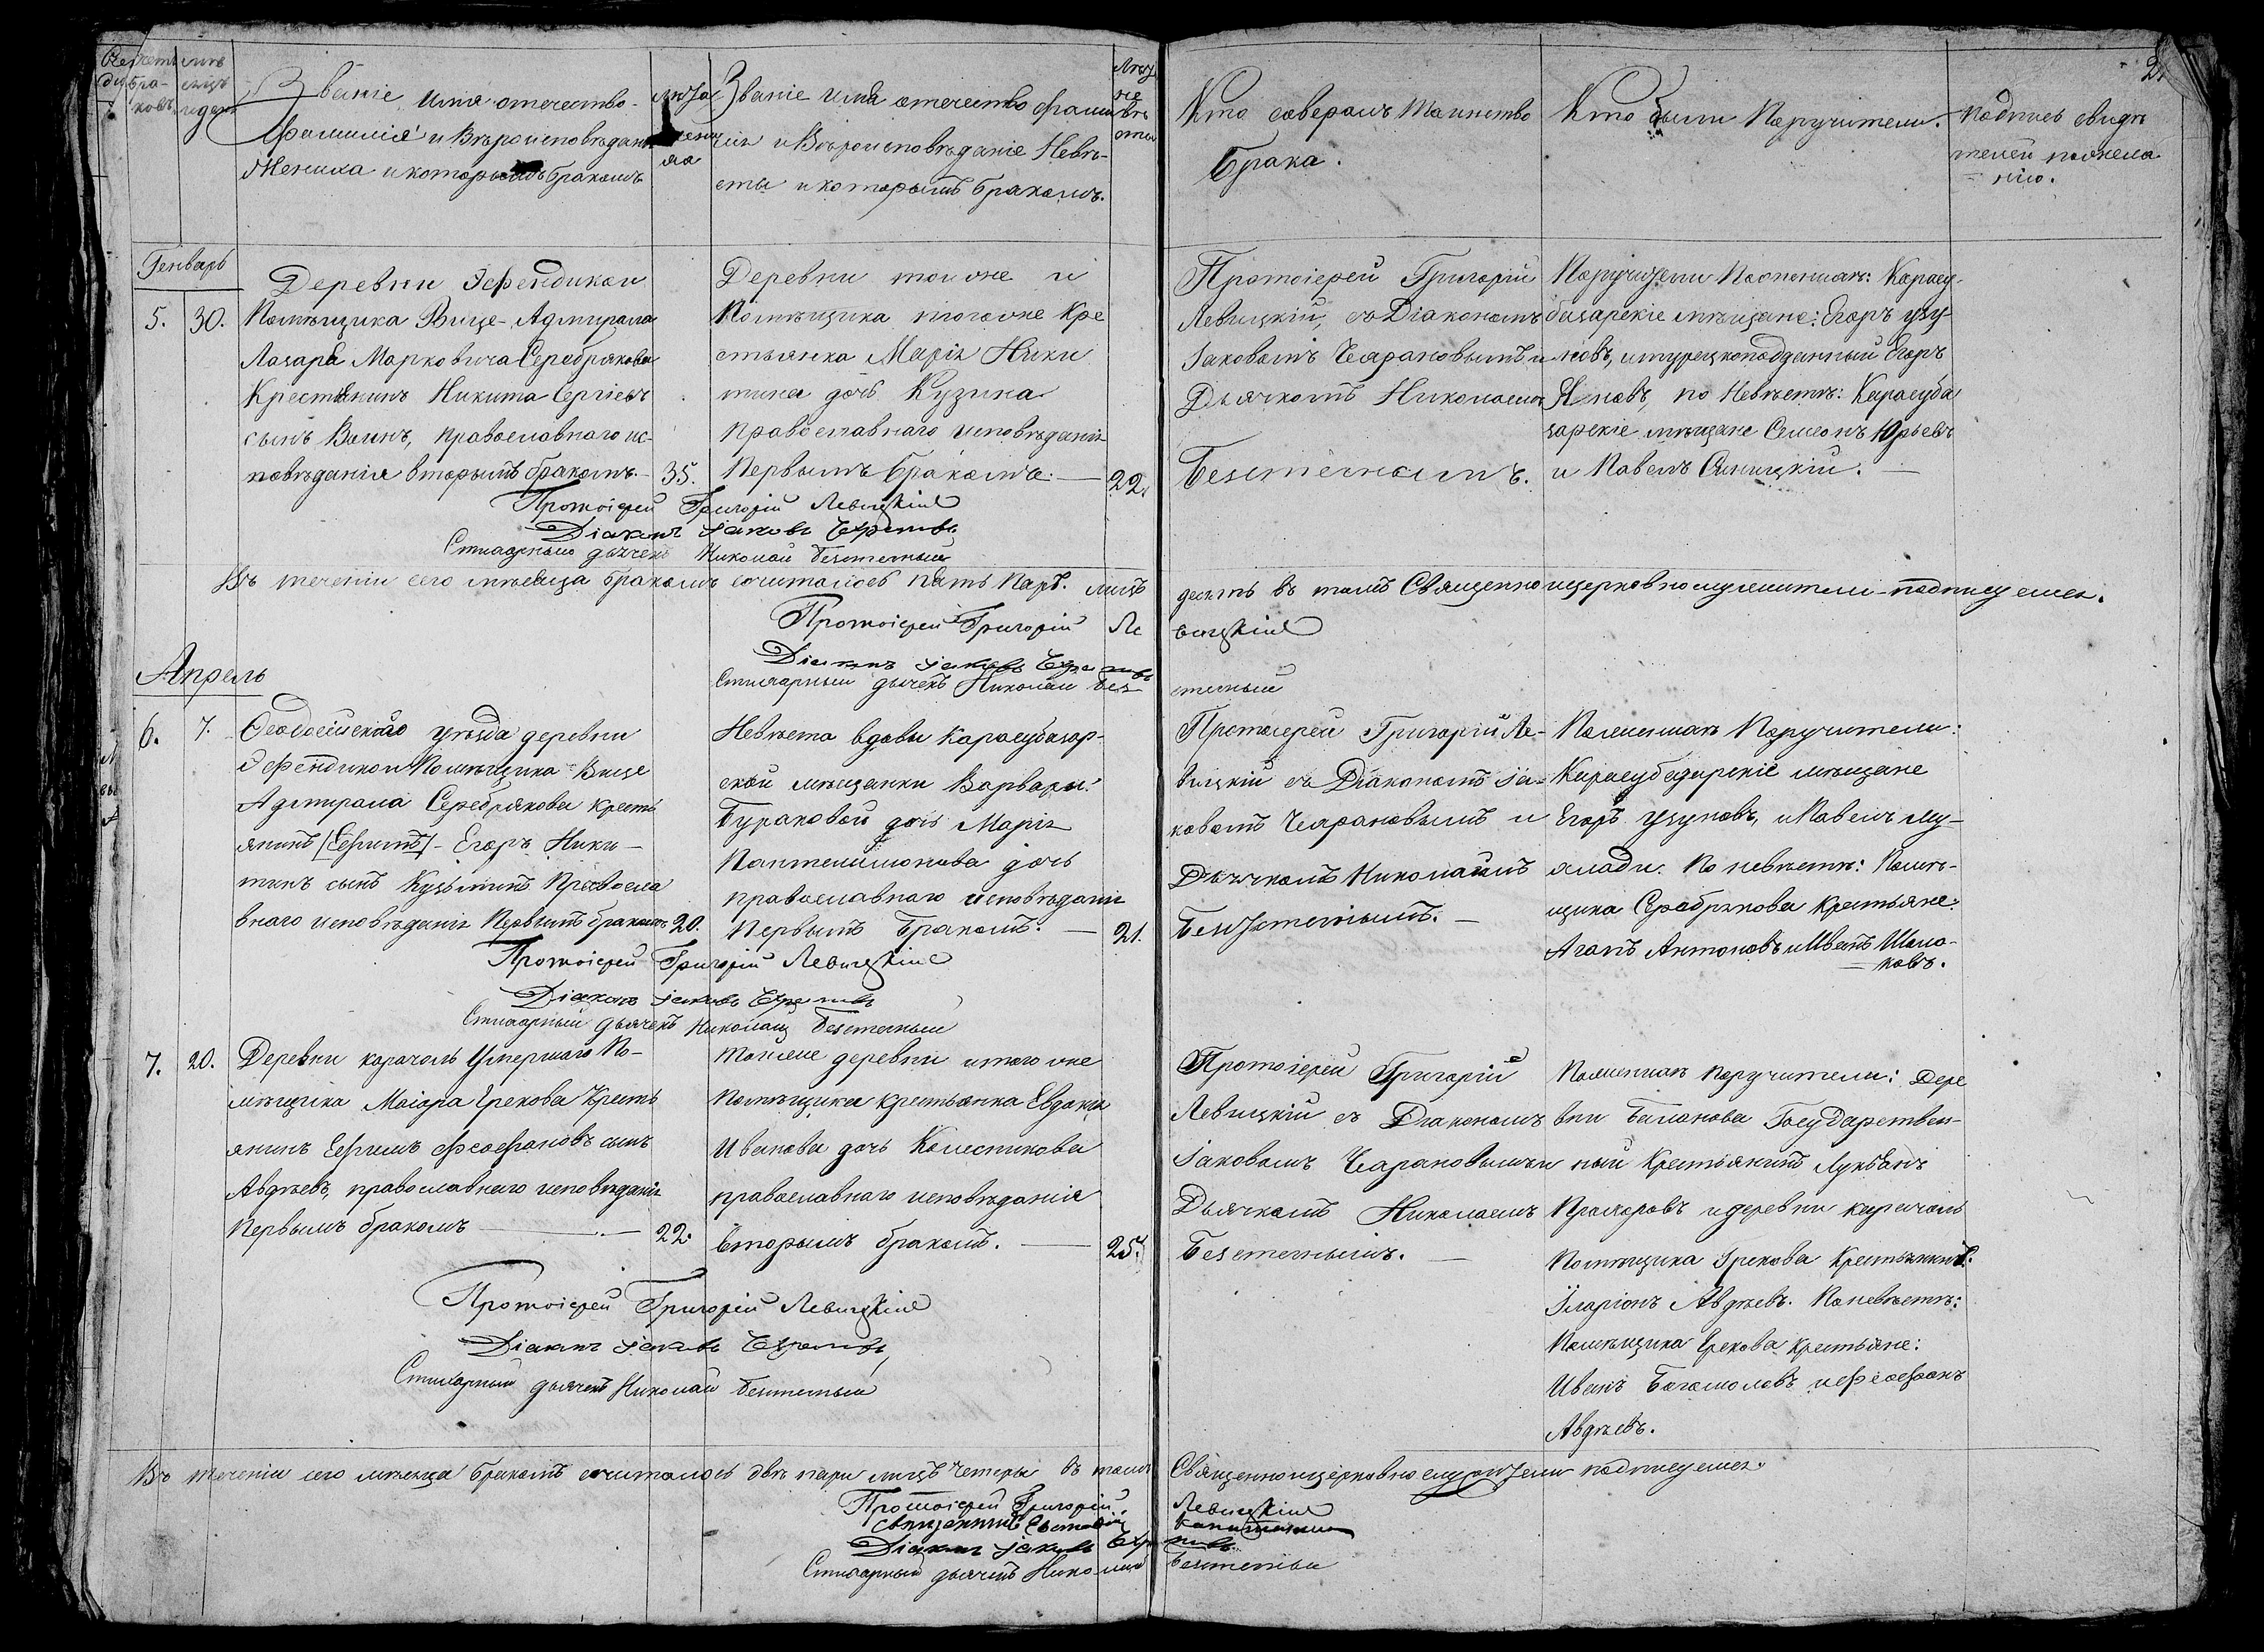 Счетъ
бра-
ковъ
мѣ
сяцъ
и день
Званіе, имя отечество
фамилія и Вѣроисповѣданіе
Жениха и которымъ бракомъ
Званіе имя отечество фами
лія и Вѣроисповѣданіе Невѣ-
сты и которымъ бракомъ.
Кто соверали Таинство
Брака.
Кто были Поручители.
подпись свидѣ
телей по жела
нію.
Генварь
5. 30.
Деревни Эфендикои
Помѣщика Вице-Адмирала
Лазаря Марковича Серебрякова
Крестьянинъ Никита Сергіевъ
сынъ Волинъ, православнаго ис-
повѣданія вторымъ бракомъ. 35.
Деревни тоиже и
Помѣщика тогоже Кре
стьянка Марія Ники
тина дочь Кузина
православнаго исповѣданія
Первымъ бракомъ. 22.
Протоіерей Григорій
Левицкій, съ Діакономъ
Іаковомъ Чарановымъ и
Дьячкомъ Николаемъ
Безстѣннымъ.
Поручители По женихѣ: Карасу-
базарскіе мѣщане: Егоръ Узу-
новъ, и турецкоподданный Егоръ
Яновъ, по Невѣстѣ: Карасуба
зарскіе мѣщане Симеонъ Юрьевъ
и Павелъ Синицкій.
Протоіерей Григорій Левицкій
Діаконъ Іаковъ
Стихарный дьячекъ Николай Безстенный
Въ теченіи сего мѣсяца бракомъ сочиталось пять Паръ. лицъ десять въ томъ Священно и церковнослужители подписуемся.
Протоіерей Григорій Левицкій
Діаконъ Іаковъ
Стихарный дьячекъ Николай Безстенный
Апрель
6. 7.
Ѳеодосійскаго уѣзда деревни
Эфендикои Помѣщика Вице
Адмирала Серебрякова кресть
янинъ Егоръ Ники-
тинъ сынъ Кузьминъ Правосла
внаго исповѣданія Первымъ бракомъ 20.
Невѣста вдовы Карасубазар-
ской мѣщанки Варвары
Бураковой дочь Марія
Пантелимонова дочь
православнаго исповѣданія
Первымъ Бракомъ. 21.
Протоіерей Григорій Ле-
вицкій съ Діакономъ Іа-
ковомъ Чарановымъ и
Дьячкомъ Николаимъ
Безстеннымъ.
По женихѣ Поручители:
Карасубазарскіе мѣщане
Егоръ Узуновъ, и Павелъ Му-
ялади. По невѣстѣ: Помѣ-
щика Серебрякова Крестьяне:
Агапъ Антоновъ и Иванъ Шало-
ковъ.
Протоіерей Григорій Левицкій
Діаконъ Іаковъ
Стихарный дьячекъ Николай Безстенный
7. 20.
Деревни карачоль Умершаго По-
мѣщика Маіора Грекова Кресть
янинъ Ефимъ Феофановъ сынъ
Авдѣевъ, православнаго исповѣданія
Первымъ бракомъ 22.
Тойже деревни и того же
Помѣщика крестьянка Евдокія
Иванова дочь Колесникова
православнаго исповѣданія
вторымъ бракомъ. 25.
Протоіерей Григорій
Левицкій съ Діакономъ
Іаковомъ Чарановымъ и
Дьячкомъ Николаемъ
Безстеннымъ.
По женихѣ поручители: Дере
вни Баланова Государствен-
ный Крестьянинъ Лукьянъ
Прохоровъ и деревни карачоль
Помѣщика Грекова Крестьянинъ:
Іларіонъ Авдѣевъ. По невѣстѣ:
Помѣщика Грекова Крестьяне:
Иванъ Багамоловъ и Феофанъ
Авдѣевъ.
Протоіерей Григорій Левицкій
Діаконъ Іаковъ
Стихарный дьячекъ Николай Безстенный
Въ теченіи сего мѣсяца бракомъ сочиталось двѣ пары лицъ четыре въ томъ Священно и церковно служители подписуемся.
Протоіерей Григорій Левицкій
священникъ
Діаконъ Іаковъ
Стихарный дьячекъ Николай Безстенный